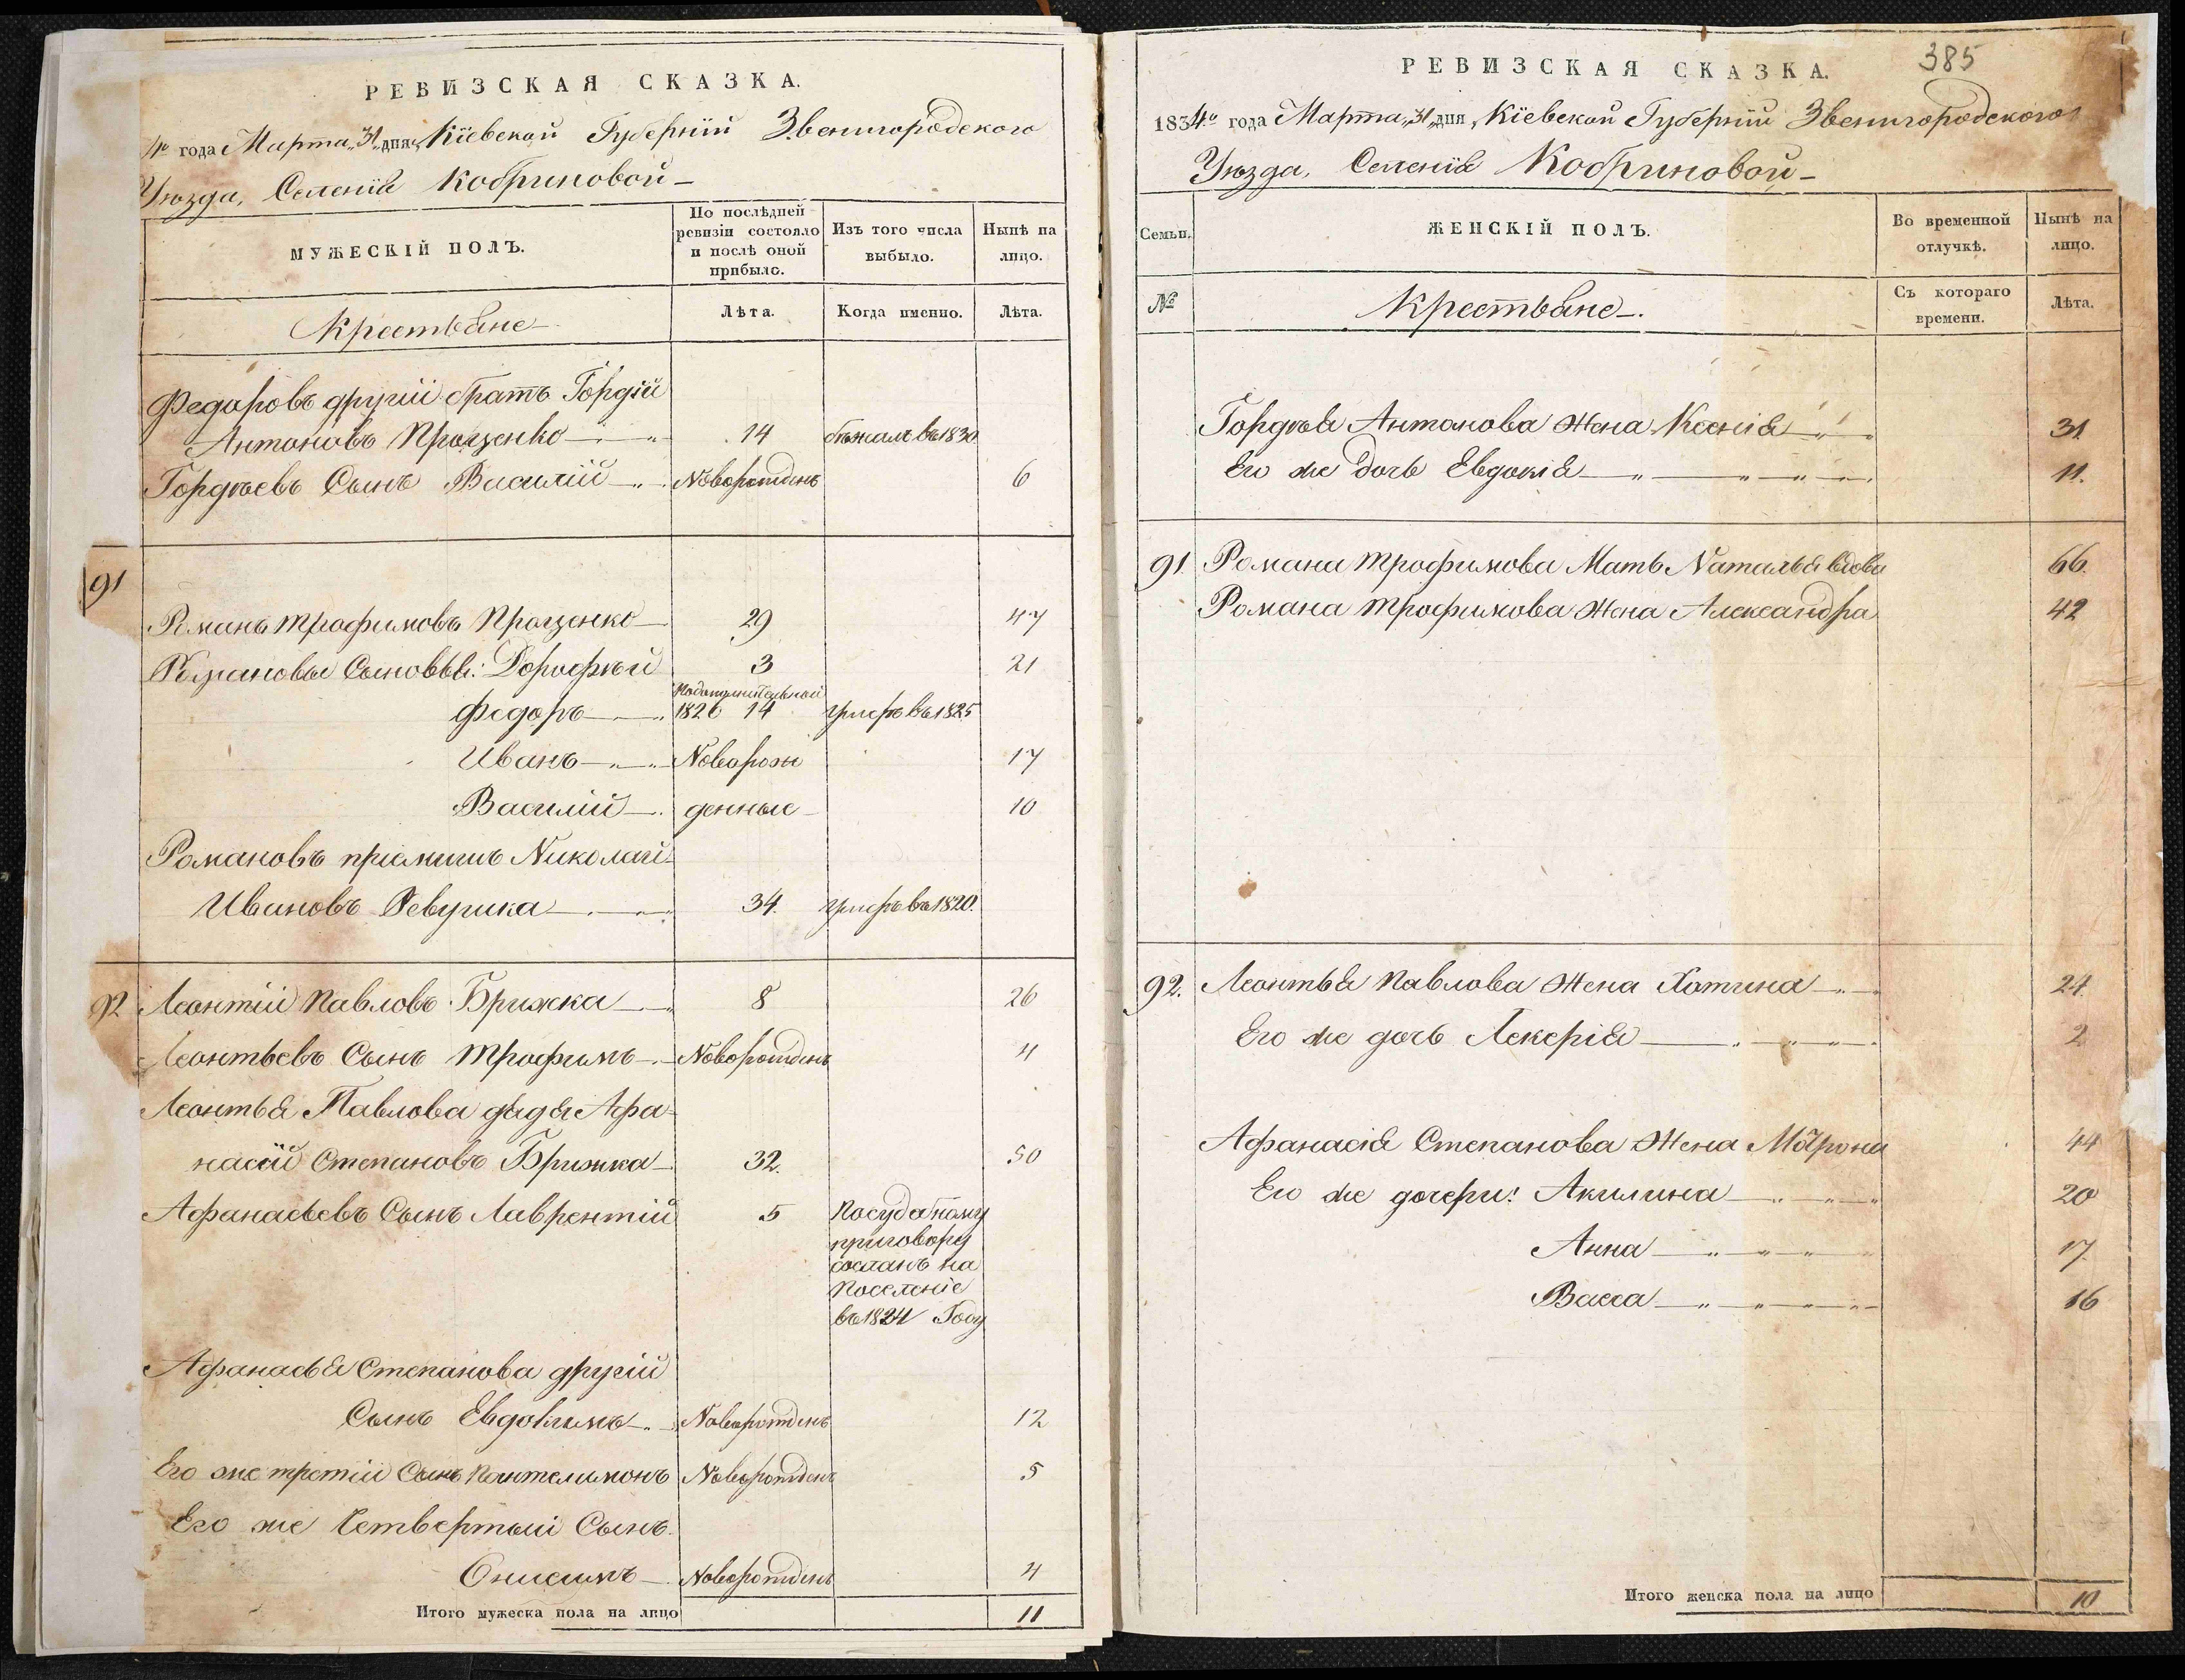 РЕВИЗСКАЯ СКАЗКА.
4го года Марта „31„ дня, Кіевской Губерніи Звенигородского
Уѣзда, Селенія Кобриновой
МУЖЕСКІЙ ПОЛЪ.
По послѣдней ревизіи состояло и послѣ оной прибыло.
Изъ того числа выбыло.
Нынѣ на лицо.
Крестьяне
Лѣта.
Когда именно.
Лѣта.
Федоровъ другій братъ Гордій
Антоновъ Проценко 14 бѣжалъ въ 1830
Гордѣевъ Сынъ Василій Новорожденъ 6
91
Романъ Трофимовъ Проценко 29 47
Романовы Сыновья: Дорофѣй 3 21
Подополнительной
Федоръ 1826 14 Умеръ въ 1825
Иванъ Новорож 17
Василій денные 10
Романовъ пріемишъ Николай
Ивановъ Ревушка 34. умеръ въ 1820.
92 Леонтій Павловъ Брижка 8 26
Леонтьевъ Сынъ Трофимъ Новорожденъ 4
Леонтья Павлова дядя Афа-
насій Степановъ Брижка 32. 50
Афанасьевъ Сынъ Лаврентій 5 Посудебному
приговору
сосланъ на
Поселеніе
въ 1824 Году
Афанасья Степанова другій
Сынъ Евдокимъ Новорожденъ 12
Его же третій Сынъ Пантелимонъ Новорожденъ 5
Его же Четвертый Сынъ
Онисимъ Новорожденъ 4
Итого мужеска пола на лицо 11
385
РЕВИЗСКАЯ СКАЗКА.
1834го года Марта „31„ дня, Кіевской Губерніи Звенигородского
Уѣзда, Селенія Кобриновой
Семьи.
ЖЕНСКІЙ ПОЛЪ.
Во временной отлучкѣ.
Нынѣ на лицо.
№
Крестьяне.
Съ котораго времени.
Лѣта.
Гордѣя Антонова жена Ксенія 31
Его же дочь Евдокія 11.
91. Романа Трофимова Мать Наталья вдова 66.
Романа Трофимова жена Александра 42
92. Леонтья Павлова жена Хотина 24.
Его же дочь Лекерія 2
Афанасія Степанова жена Маြрона 44
Его же дочери: Акилина 20
Анна 17.
Васса 16
Итого женска пола на лицо 10